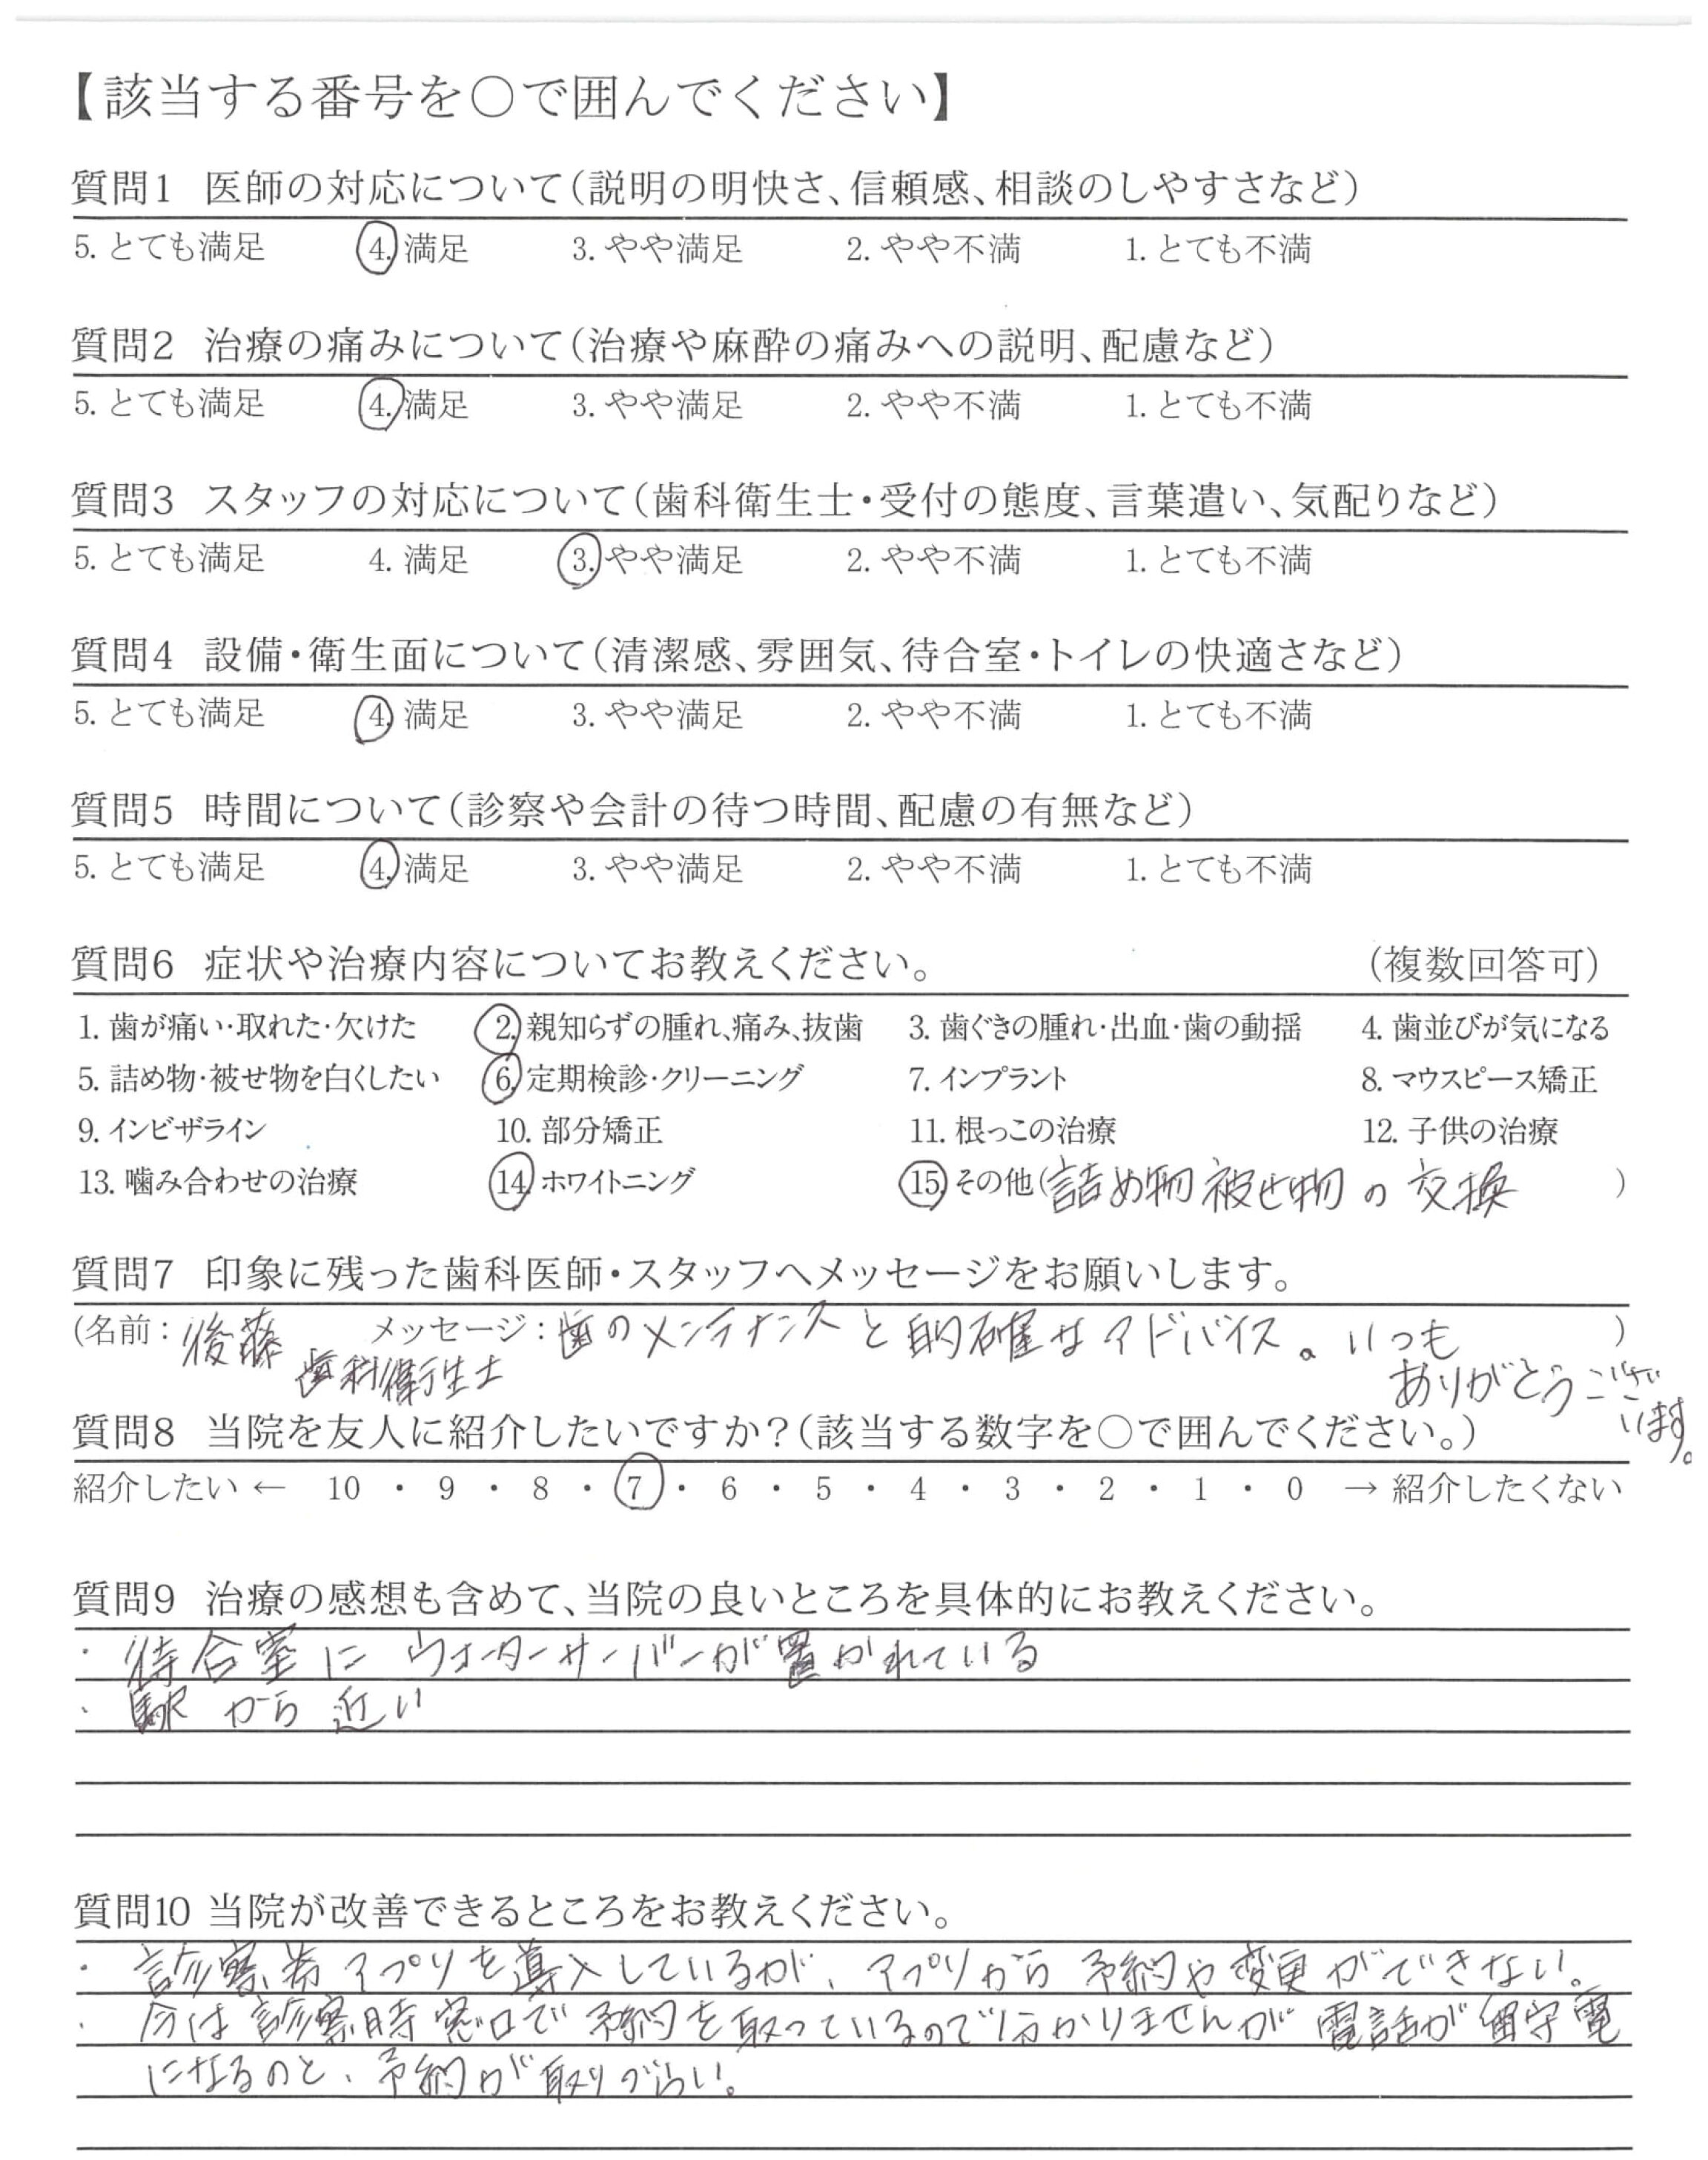 【該当する番号を○で囲んでください】
質問1 医師の対応について(説明の明快さ、信頼感、相談のしやすさなど)
5. とても満足 4. 満足 3. やや満足 2. やや不満 1. とても不満
質問2 治療の痛みについて(治療や麻酔の痛みへの説明、配慮など)
5. とても満足 4. 満足 3. やや満足 2. やや不満 1. とても不満
質問3 スタッフの対応について(歯科衛生士・受付の態度、言葉遣い、気配りなど)
5. とても満足 4. 満足 3. やや満足 2. やや不満 1. とても不満
質問4 設備・衛生面について(清潔感、雰囲気、待合室・トイレの快適さなど)
5. とても満足 4. 満足 3. やや満足 2. やや不満 1. とても不満
質問5 時間について(診察や会計の待つ時間、配慮の有無など)
5. とても満足 4. 満足 3. やや満足 2. やや不満 1. とても不満
質問6 症状や治療内容についてお教えください。 (複数回答可)
1. 歯が痛い・取れた・欠けた 2. 親知らずの腫れ、痛み、抜歯 3. 歯ぐきの腫れ・出血・歯の動揺 4. 歯並びが気になる
5. 詰め物・被せ物を白くしたい 6. 定期検診・クリーニング 7. インプラント 8. マウスピース矯正
9. インビザライン 10. 部分矯正 11. 根っこの治療 12. 子供の治療
13. 噛み合わせの治療 14. ホワイトニング 15. その他(詰め物被せ物の交換)
質問7 印象に残った歯科医師・スタッフへメッセージをお願いします。
(名前:後藤 メッセージ:歯のメンテナンスと的確なアドバイス。いつも)
歯科衛生士 ありがとうござ
います。
質問8 当院を友人に紹介したいですか?(該当する数字を○で囲んでください。)
紹介したい ← 10 ・ 9 ・ 8 ・ 7 ・ 6 ・ 5 ・ 4 ・ 3 ・ 2 ・ 1 ・ 0 → 紹介したくない
質問9 治療の感想も含めて、当院の良いところを具体的にお教えください。
・ 待合室にウォーターサーバーが置かれている
・ 駅から近い
質問10 当院が改善できるところをお教えください。
・ 診察券アプリを導入しているが、アプリから予約や変更ができない。
・ 今は診察時窓口で予約を取っているので分かりませんが電話が留守電
になるのと、予約が取りづらい。